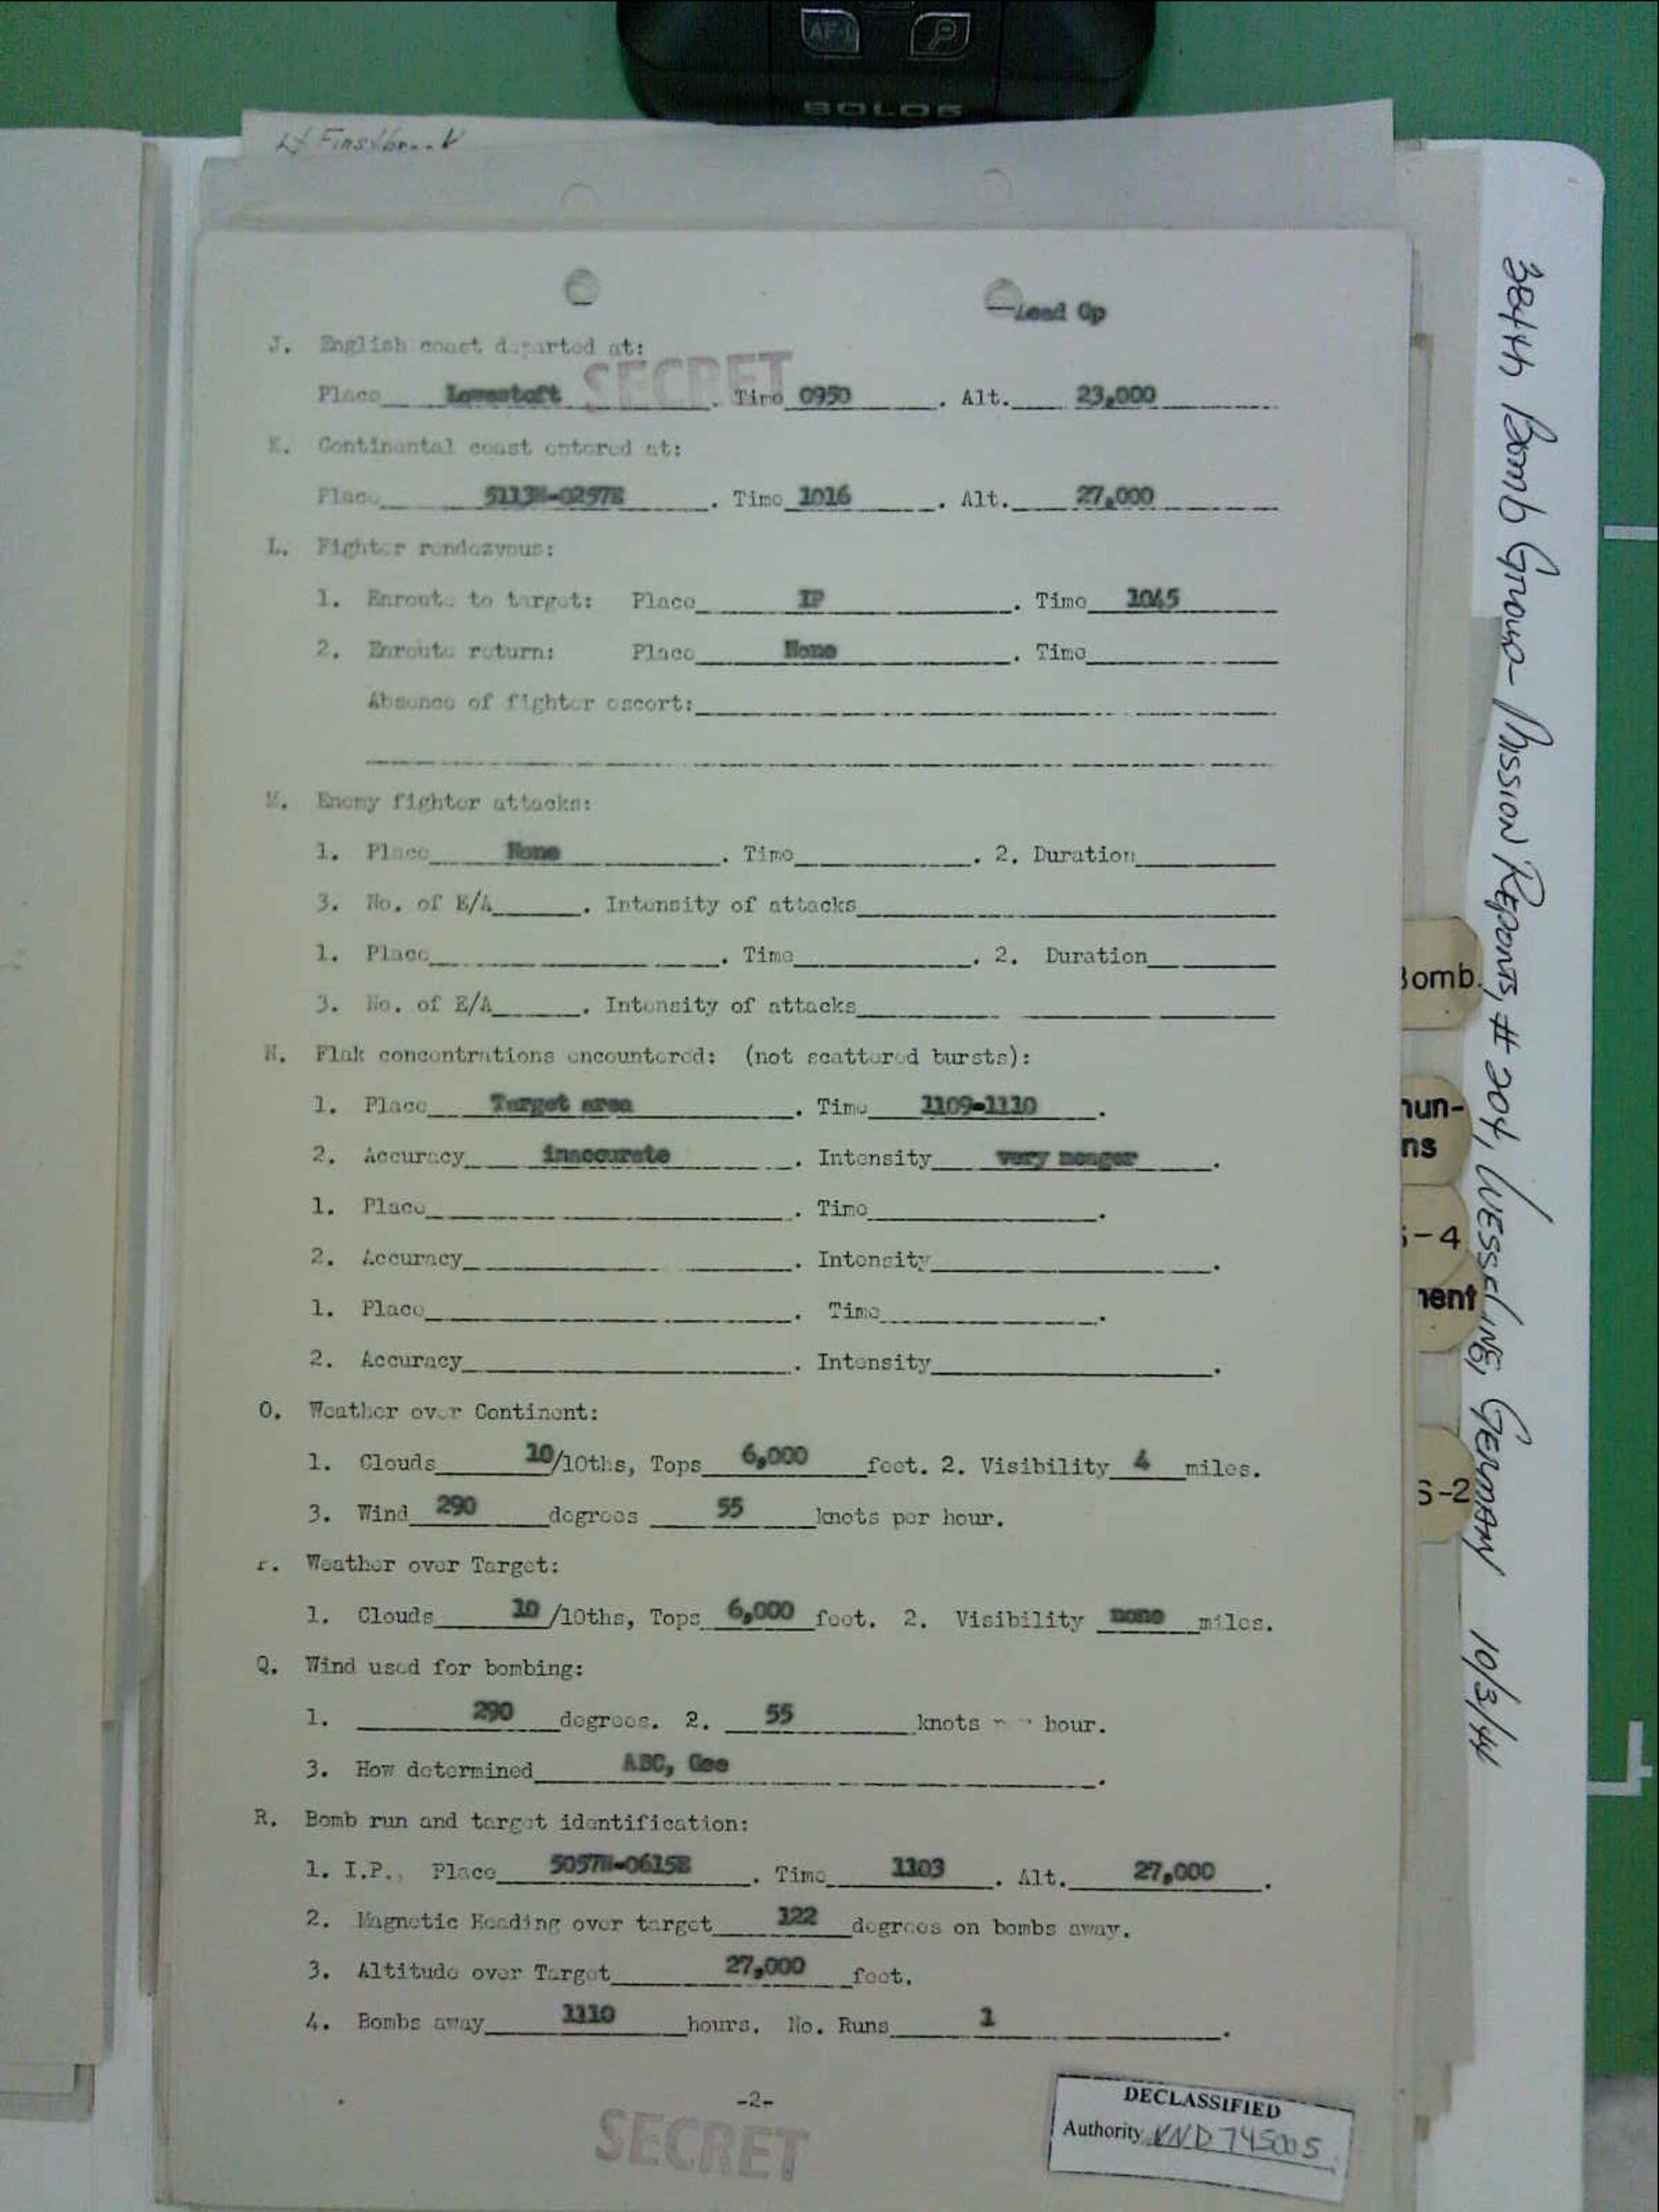 AF-L
SOLOR
Lead Gp
J. English coast departed at:
SECRET
Place Lowestoft . Time 0950 . Alt. 23,000
K. Continental coast entered at:
Place 5113N-0257E . Time 1016 . Alt. 27,000
L. Fighter rendezvous:
1. Enroute to target: Place IP . Time 1045
2. Enroute return: Place None . Time
Absence of fighter escort:
M. Enemy fighter attacks:
1. Place None . Time . 2. Duration
3. No. of E/A . Intensity of attacks
1. Place . Time . 2. Duration
3. No. of E/A . Intensity of attacks
N. Flak concentrations encountered: (not scattered bursts):
1. Place Target area . Time 1109-1110 .
2. Accuracy inaccurate . Intensity very meager .
1. Place . Time .
2. Accuracy . Intensity .
1. Place . Time .
2. Accuracy . Intensity .
O. Weather over Continent:
1. Clouds 10/10ths, Tops 6,000 feet. 2. Visibility 4 miles.
3. Wind 290 degrees 55 knots per hour.
P. Weather over Target:
1. Clouds 10/10ths, Tops 6,000 feet. 2. Visibility none miles.
Q. Wind used for bombing:
1. 290 degrees. 2. 55 knots hour.
3. How determined ABC, Gee .
R. Bomb run and target identification:
1. I.P., Place 5057N-0615E . Time 1103 . Alt. 27,000 .
2. Magnetic Heading over target 122 degrees on bombs away.
3. Altitude over Target 27,000 feet.
4. Bombs away 1110 hours. No. Runs 1 .
-2-
SECRET
DECLASSIFIED
Authority NND 745005
384th Bomb Group - Mission Reports, # 204, Wesseling, Germany 10/3/44
omb.
mun-
ns
-4
ment
S-2